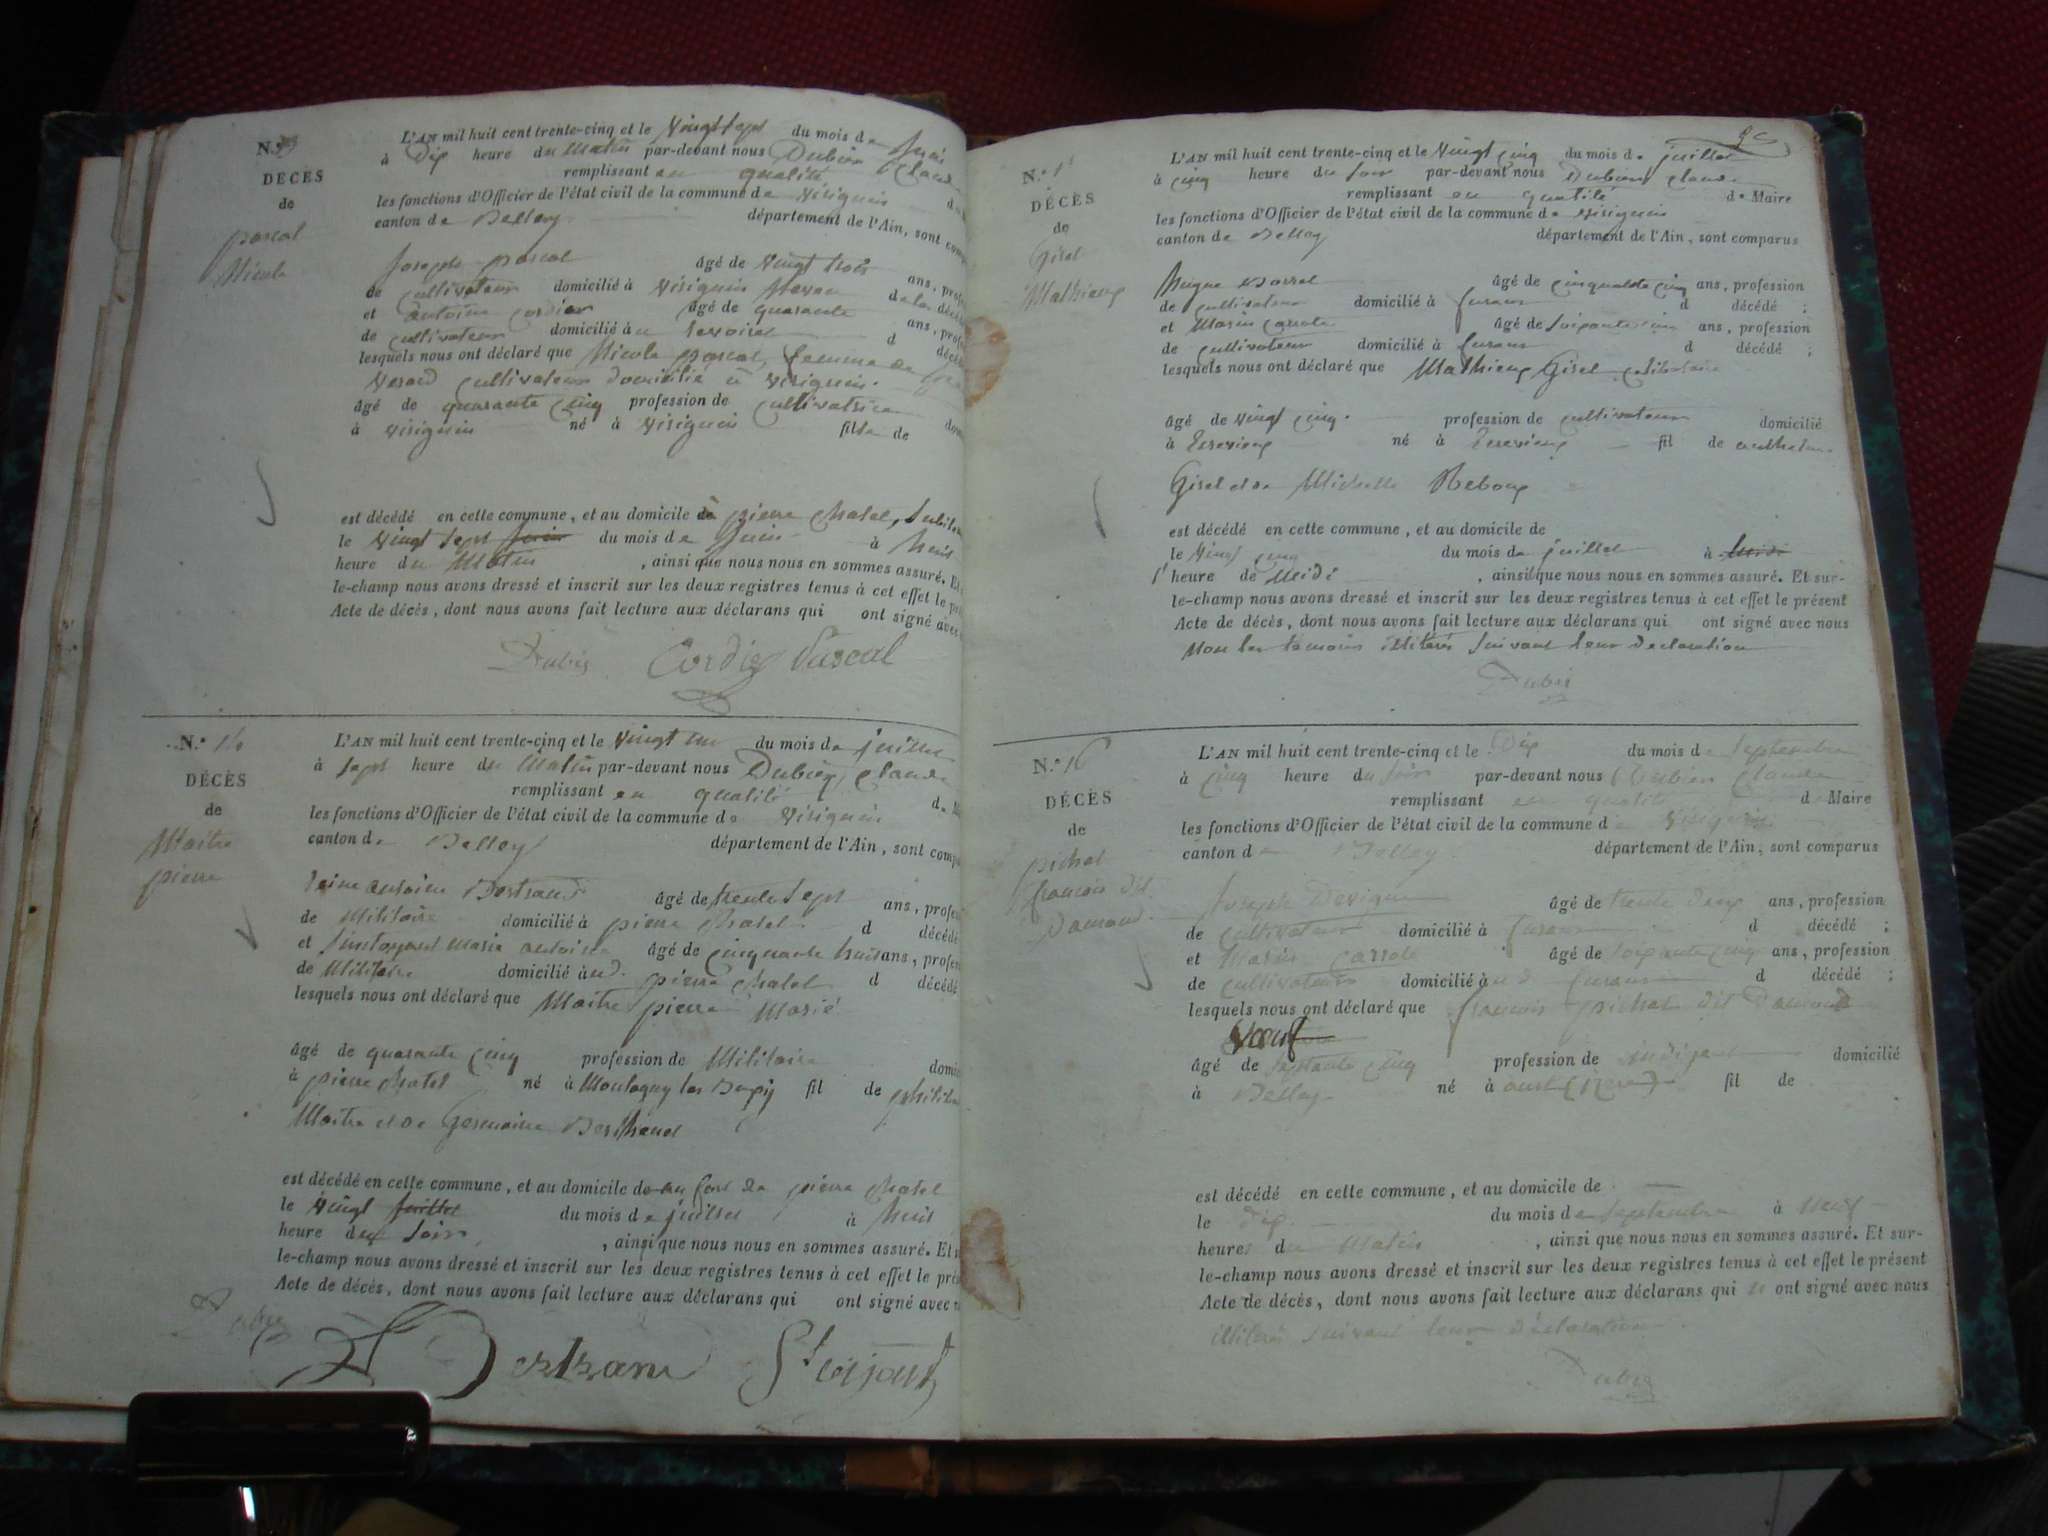 N.º
DÉCÈS
de
pascal
Nicole
L'AN mil huit cent trente-cinq et le Vingt sept du mois de Juin
à Dix heure du Matin par-devant nous Dubien Claude
remplissant en qualité
les fonctions d'Officier de l'état civil de la commune de Virignin
canton de Belley département de l'Ain, sont comp
Joseph pascal âgé de vingt trois ans, profe
de cultivateur domicilié à Virignin
et antoine cordier âgé de quarante ans, profe
de cultivateur domicilié à d décédé
lesquels nous ont déclaré que Nicole pascal, femme de
cultivateur domicilié à Virignin.
âgé de quarante cinq profession de cultivatrice
à Virignin né à Virignin fille de
est décédé en cette commune, et au domicile de pierre chatel,
le vingt sept Juin du mois de Juin à huit
heure du Matin , ainsi que nous nous en sommes assuré. Et
le-champ nous avons dressé et inscrit sur les deux registres tenus à cet effet le pré
Acte de décès, dont nous avons fait lecture aux déclarans qui ont signé avec
Dubien Cordier Pascal
N.º 14
DÉCÈS
de
Maitre
pierre
L'AN mil huit cent trente-cinq et le Vingt un du mois de juillet
à sept heure du Matin par-devant nous Dubien Claude
remplissant en qualité
les fonctions d'Officier de l'état civil de la commune de Virignin
canton de Belley département de l'Ain, sont comp
antoine Bertrand âgé de trente sept ans, profe
de Militaire domicilié à pierre chatel d décédé
et Marie antoine âgé de cinquante huit ans, profe
de Militaire domicilié à pierre chatel d décédé
lesquels nous ont déclaré que Maitre pierre Marié
âgé de quarante cinq profession de Militaire
à pierre chatel né à Montagny fil de
Maitre et de Germaine Berthaud
est décédé en cette commune, et au domicile de au fort de pierre chatel
le vingt juillet du mois de juillet à huit
heure du soir , ainsi que nous nous en sommes assuré. Et
le-champ nous avons dressé et inscrit sur les deux registres tenus à cet effet le pré
Acte de décès, dont nous avons fait lecture aux déclarans qui ont signé avec
Dubien
Bertrand
N.º
DÉCÈS
de
Gisel
Mathieux
L'AN mil huit cent trente-cinq et le vingt cinq du mois de juillet
à cinq heure du soir par-devant nous Dubien Claude
remplissant en qualité de Maire
les fonctions d'Officier de l'état civil de la commune de Virignin
canton de Belley département de l'Ain, sont comparus
Hugue âgé de cinquante cinq ans, profession
de cultivateur domicilié à d décédé ;
et Marin carrote âgé de soixante cinq ans, profession
de cultivateur domicilié à d décédé ;
lesquels nous ont déclaré que Mathieux Gisel célibataire
âgé de vingt cinq. profession de cultivateur domicilié
à né à fil de
Gisel et de Michelle Reboux
est décédé en cette commune, et au domicile de
le vingt cinq du mois de juillet à Midi
heure de Midi , ainsi que nous nous en sommes assuré. Et sur-
le-champ nous avons dressé et inscrit sur les deux registres tenus à cet effet le présent
Acte de décès, dont nous avons fait lecture aux déclarans qui ont signé avec nous
Non les temoins illiterés suivant leur declaration
Dubien
N.º 16
DÉCÈS
de
pichat
francois dit
Damaud
L'AN mil huit cent trente-cinq et le Dix du mois de septembre
à cinq heure du soir par-devant nous Dubien Claude
remplissant en qualité de Maire
les fonctions d'Officier de l'état civil de la commune de Virignin
canton de Belley département de l'Ain, sont comparus
Joseph âgé de trente deux ans, profession
de cultivateur domicilié à d décédé ;
et Marin carrote âgé de soixante cinq ans, profession
de cultivateur domicilié à d décédé ;
lesquels nous ont déclaré que francois pichat dit Damaud
veuf
âgé de septante cinq profession de indigent domicilié
à Belley né à fil de
est décédé en cette commune, et au domicile de
le dix du mois de septembre à neuf
heures du Matin , ainsi que nous nous en sommes assuré. Et sur-
le-champ nous avons dressé et inscrit sur les deux registres tenus à cet effet le présent
Acte de décès, dont nous avons fait lecture aux déclarans qui ont signé avec nous
illiterés suivant leur déclaration
Dubien